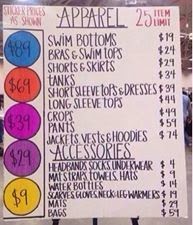 STICKER PRICES
AS SHOWN
APPAREL 25 ITEM LIMIT
$89
$69
$39
$29
$9
SWIM BOTTOMS $19
BRAS & SWIM TOPS $24
SHORTS & SKIRTS $29
TANKS $34
SHORT SLEEVE TOPS & DRESSES $39
LONG SLEEVE TOPS $44
CROPS $49
PANTS $59
JACKETS, VESTS & HOODIES $74
ACCESSORIES
HEADBANDS, SOCKS, UNDERWEAR $4
MAT STRAPS, TOWELS, HATS $9
WATER BOTTLES $14
SCARVES, GLOVES, NECK & LEG WARMERS $19
MATS $29
BAGS $59